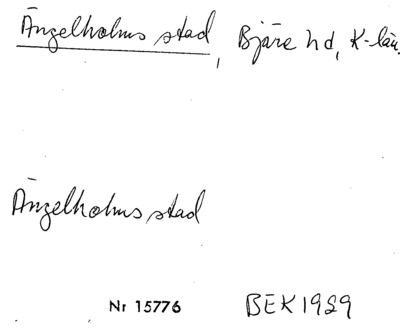 Ängelholms stad, Bjäre hd, K-län.
Ängelholms stad
Nr 15776 BEK 1989